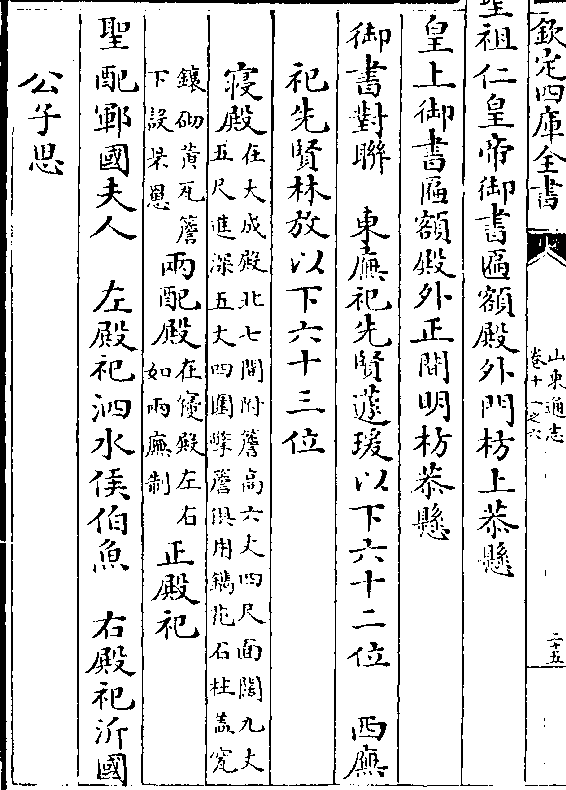 欽定四庫全書
山東通志
卷十一之六
二十五
聖祖仁皇帝御書匾額殿外門枋上恭懸
皇上御書匾額殿外正間明枋恭懸
御書對聯　東廡祀先賢蘧瑗以下六十二位　西廡
祀先賢林放以下六十三位
寢殿在大成殿北七間附簷高六丈四尺面闊九丈
五尺進深五丈四圍擎簷俱用鐫花石柱蓋寬
鑲砌黄瓦簷
下設罘罳
兩配殿在寢殿左右
如兩廡制
正殿祀
聖配鄆國夫人　左殿祀泗水侯伯魚　右殿祀沂國
公子思